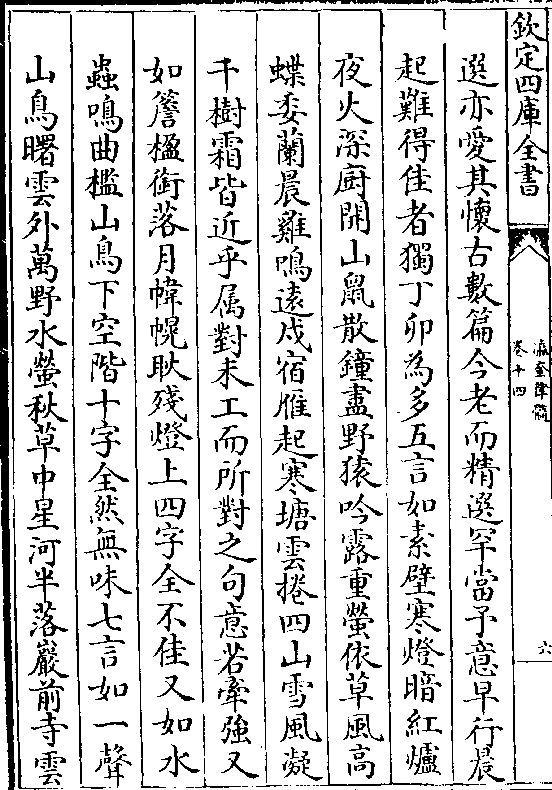 欽定四庫全書
瀛奎律髓
卷十四
六
選亦愛其懷古數篇今老而精選罕當予意早行晨
起難得佳者獨丁卯為多五言如素壁寒燈暗紅爐
夜火深厨開山鼠散鐘盡野猿吟露重螢依草風高
蝶委蘭晨雞鳴遠戍宿雁起寒塘雲捲四山雪風凝
千樹霜皆近乎属對未工而所對之句意若牽強又
如簷楹銜落月幃幌耿殘燈上四字全不佳又如水
蟲鳴曲檻山鳥下空階十字全然無味七言如一聲
山鳥曙雲外萬野水螢秋草中星河半落巖前寺雲